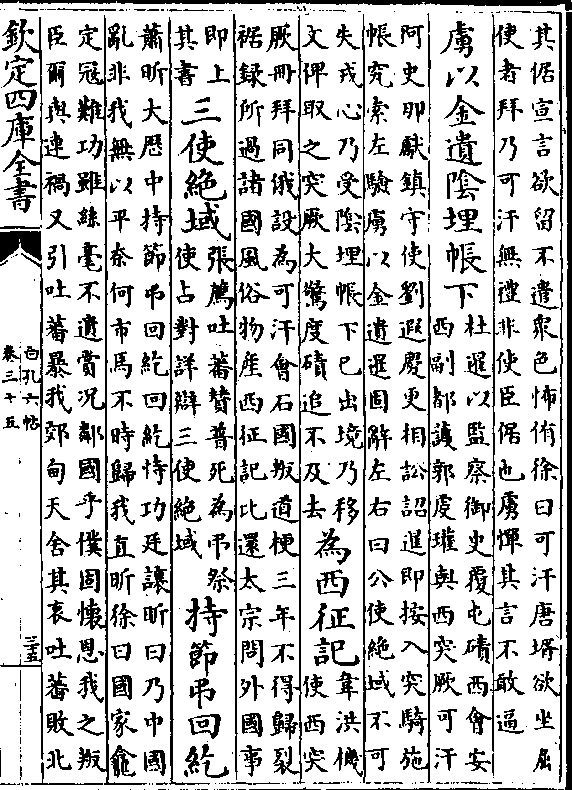 其倨宣言欲留不遣衆色怖侑徐曰可汗唐壻欲坐屈
使者拜乃可汗無禮非使臣倨也虜憚其言不敢逼
虜以金遺陰埋帳下
杜暹以監察御史覆屯磧西會安
西副都護郭虔瓘與西突厥可汗
阿史那獻鎮守使劉遐慶更相訟詔暹即按入突騎施
帳究索左驗虜以金遺暹固辭左右曰公使絶域不可
失戎心乃受陰埋帳下已出境乃移
文俾取之突厥大驚度磧追不及去
為西征記
韋洪機
使西突
厥冊拜同俄設為可汗會石國叛道梗三年不得歸裂
裾録所過諸國風俗物產西征記比還太宗問外國事
即上
其書
三使絶域
張薦吐蕃贊普死為弔祭
使占對詳辯三使絶域
持節弔回紇
蕭昕大厯中持節弔回紇回紇恃功廷讓昕曰乃中國
亂非我無以平奈何市馬不時歸我直昕徐曰國家龕
定冦難功雖絲毫不遺賞況鄰國乎僕固懷恩我之叛
臣爾與連禍又引吐蕃暴我郊甸天舍其衷吐蕃敗北
欽定四庫全書
白孔六帖
卷三十五
三五